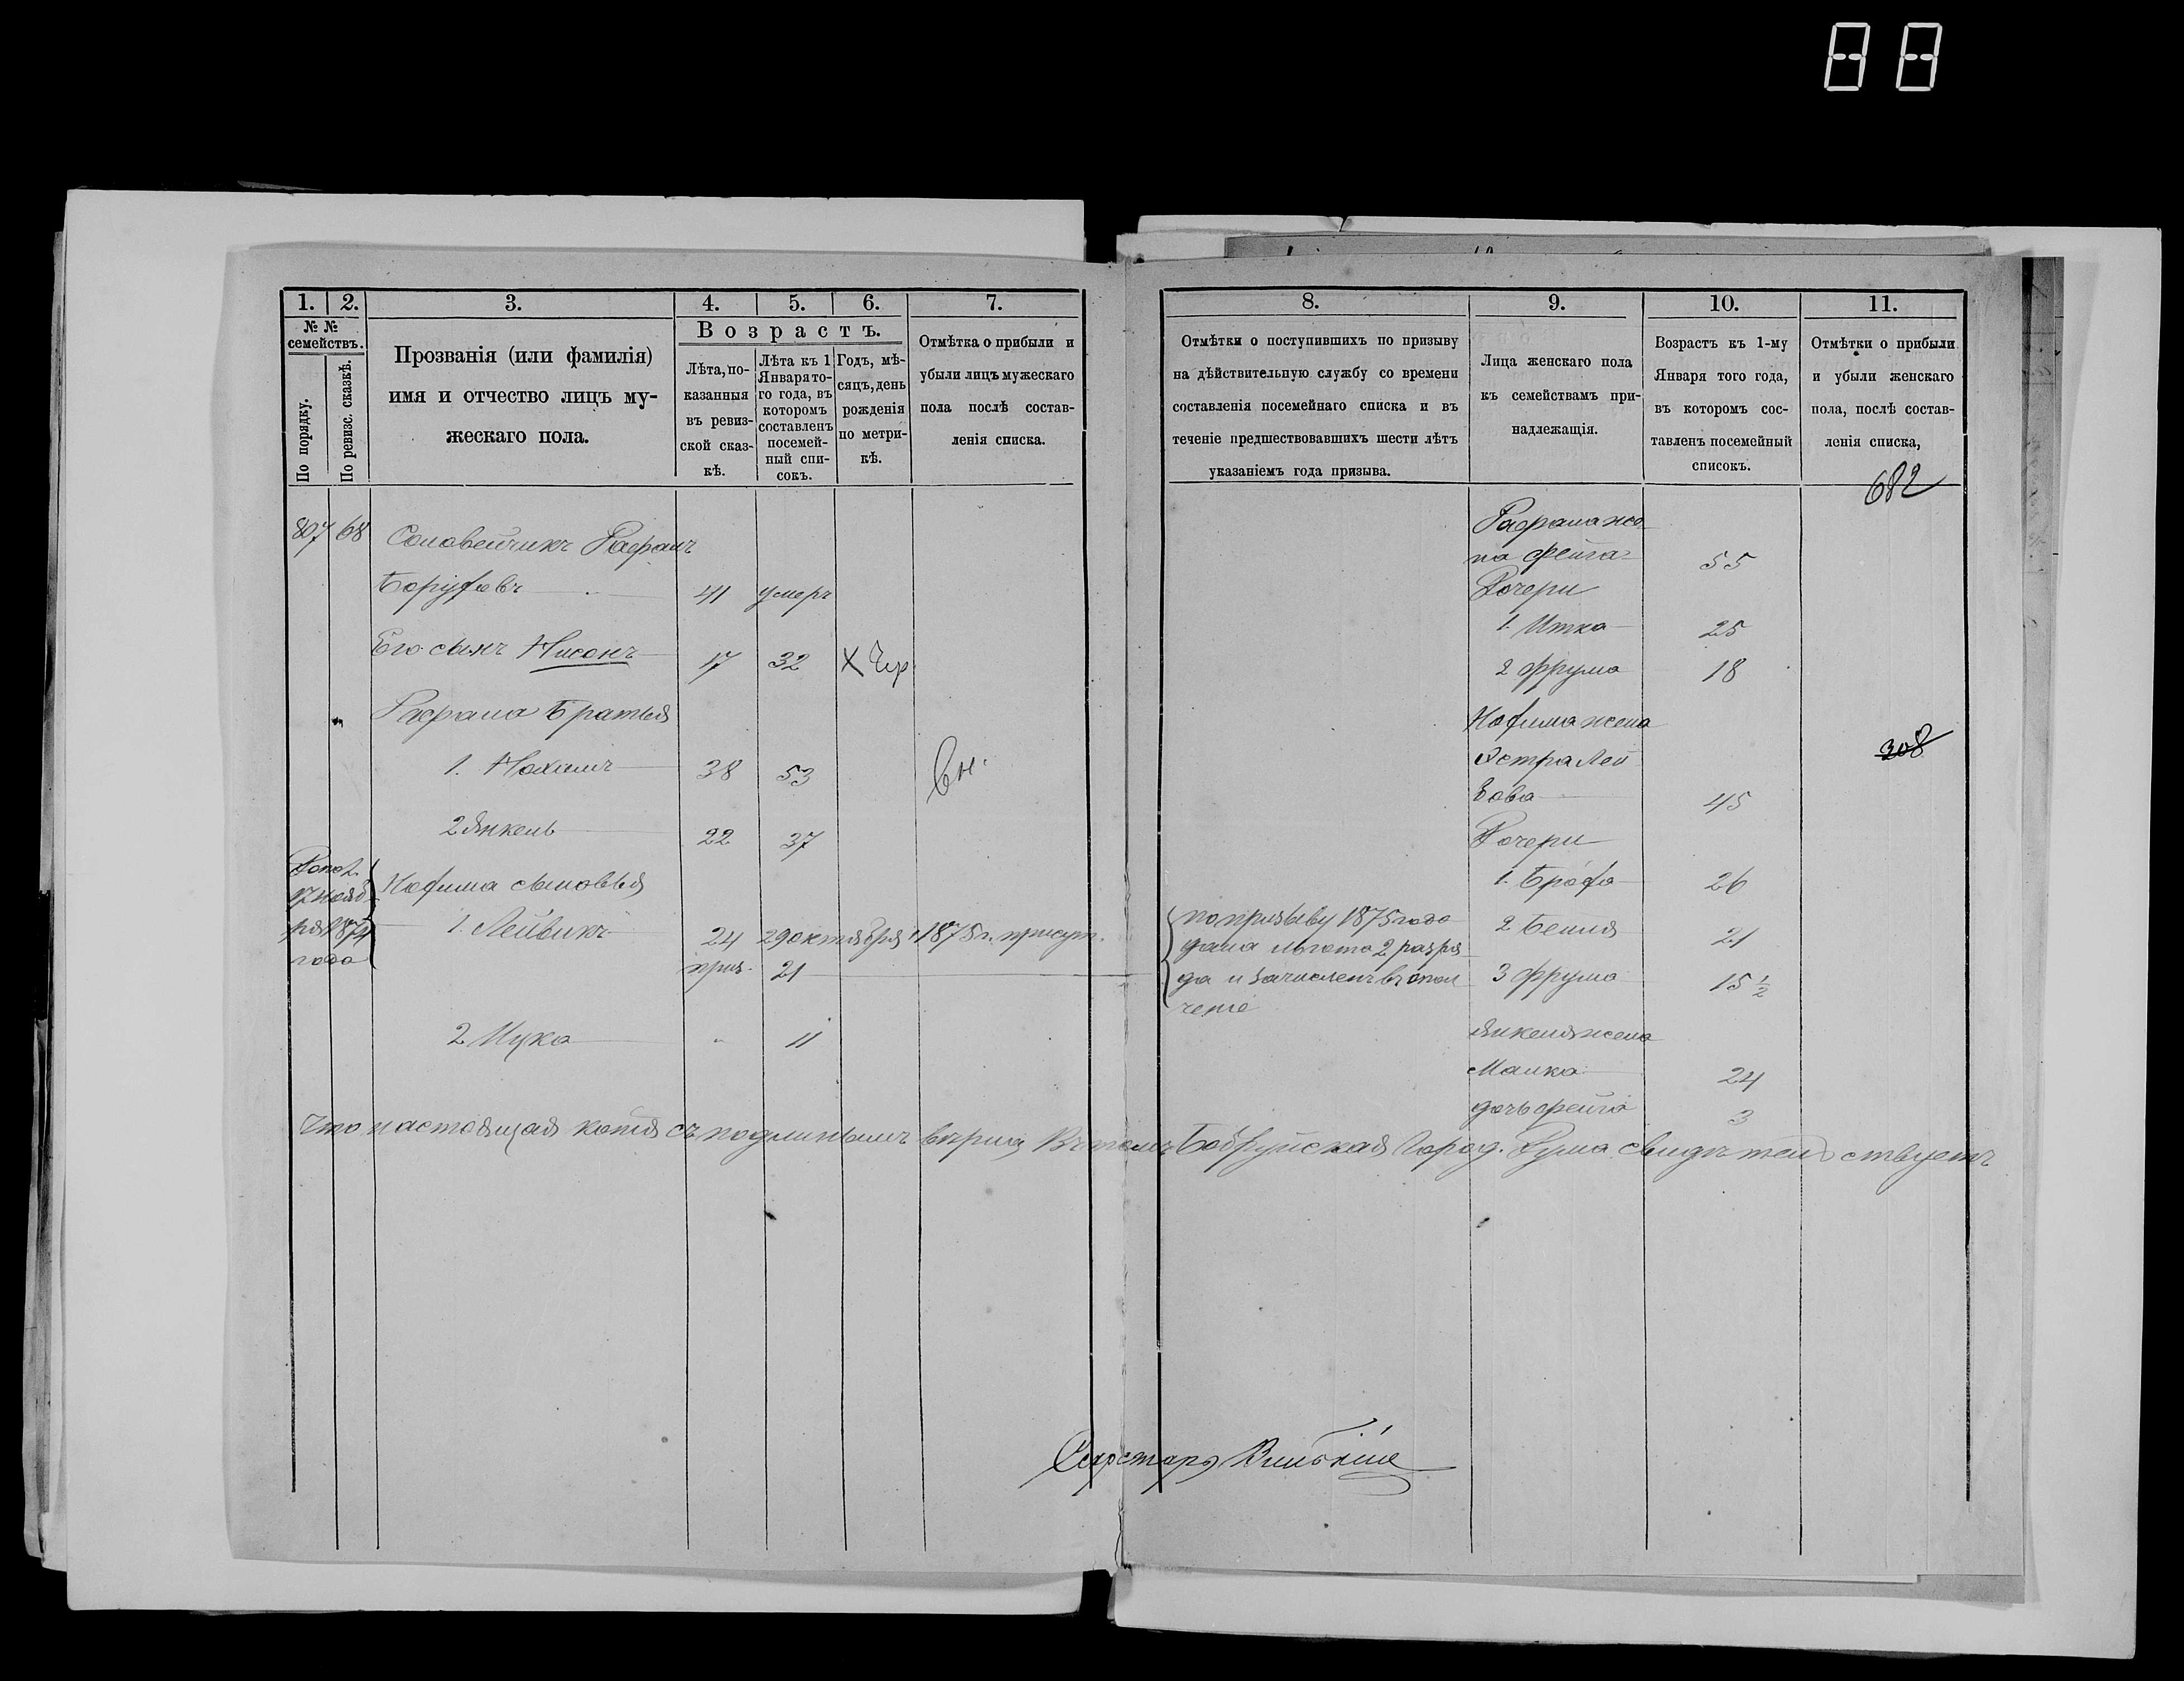 88
1. 2. 3. 4. 5. 6. 7.
№ № семействъ.
По порядку.
По ревизс. сказкѣ.
Прозванія (или фамилія)
имя и отчество лицъ му-
жескаго пола.
Возрастъ.
Лѣта, по-
казанныя
въ ревиз-
ской сказ-
кѣ.
Лѣта къ 1
Января то-
го года, въ
которомъ
составленъ
посемей-
ный спи-
сокъ.
Годъ, мѣ-
сяцъ, день
рожденія
по метри-
кѣ.
Отмѣтка о прибыли и
убыли лицъ мужескаго
пола послѣ состав-
ленія списка.
807 68 Соловейчикъ Рафаилъ
Боруховъ 41 умеръ
Его сынъ Нисонъ 17 32 X Чер
Рафаила братья
1. Нохимъ 38 53 Вн.
2 Янкель 22 37
Допол.
17 нояб
ря 1874
года
Нохима сыновья
1. Лейвикъ 24 29 октября 1875 г. присут.
приз. 21
2 Ицка " 11
8. 9. 10. 11.
Отмѣтки о поступившихъ по призыву
на дѣйствительную службу со времени
составленія посемейнаго списка и въ
теченіе предшествовавшихъ шести лѣтъ
указаніемъ года призыва.
Лица женскаго пола
къ семействамъ при-
надлежащія.
Возрастъ къ 1-му
Января того года,
въ которомъ сос-
тавленъ посемейный
списокъ.
Отмѣтки о прибыли
и убыли женскаго
пола, послѣ состав-
ленія списка,
682
Рафаила же
на Фейга 55
Дочери
1. Итка 25
2 Фрума 18
Нохима жена
Эстра Лей
бова 45
308
Дочери
1. Броха 26
по призыву 1875 года
дана льгота 2 разря
да и зачисленъ въ опол
ченіе
2 Бейля 21
3 Фрума 15 ½
Янкеля жена
Малка 24
дочь Фейга 3
Что настоящая копія съ подлиннымъ вѣрна въ томъ Бобруйская Город. Дума свидѣтельствуетъ
Секретарь